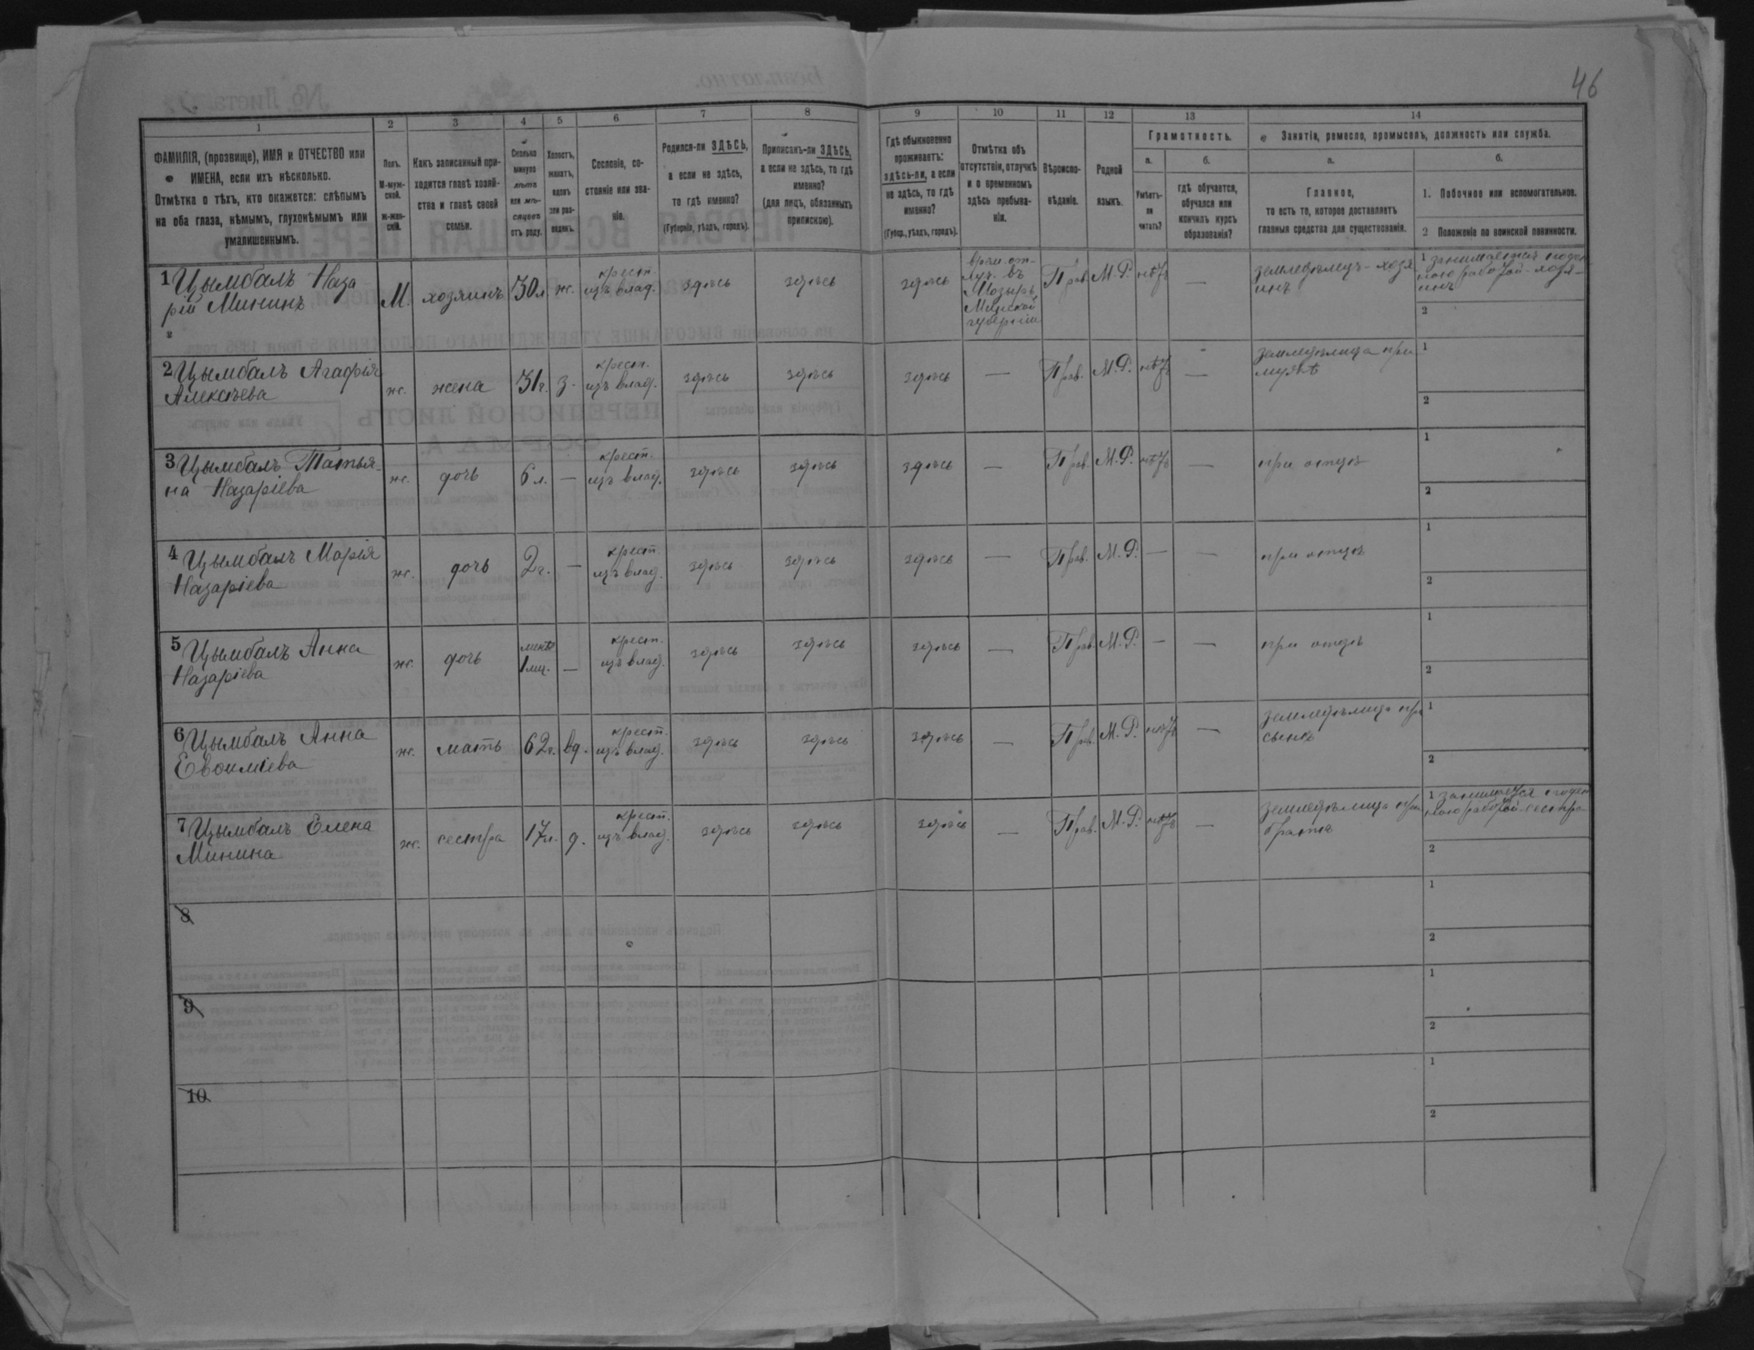 46
1 2 3 4 5 6 7 8 9 10 11 12 13 14
ФАМИЛІЯ, (прозвище), ИМЯ и ОТЧЕСТВО или
ИМЕНА, если ихъ нѣсколько.
Отмѣтка о тѣхъ, кто окажется: слѣпымъ
на оба глаза, нѣмымъ, глухонѣмымъ или
умалишеннымъ.
Полъ.
М-муж-
ской.
ж-жен-
скій.
Какъ записанный при-
ходится главѣ хозяй-
ства и главѣ своей
семьи.
Сколько
минуло
лѣтъ
или мѣ-
сяцевъ
отъ роду.
Холостъ,
женатъ,
вдовъ
или раз-
веденъ.
Сословіе, со-
стояніе или зва-
ніе.
Родился-ли ЗДѢСЬ,
а если не здѣсь,
то гдѣ именно?
(Губернія, уѣздъ, городъ).
Приписанъ-ли ЗДѢСЬ,
а если не здѣсь, то гдѣ
именно?
(для лицъ, обязанныхъ
припискою).
Гдѣ обыкновенно
проживаетъ:
здѣсь-ли, а если
не здѣсь, то гдѣ
именно?
(Губер., уѣздъ, городъ).
Отмѣтка объ
отсутствіи, отлучкѣ
и о временномъ
здѣсь пребыва-
ніи.
Вѣроиспо-
вѣданіе.
Родной
языкъ.
Грамотность.
а. б.
Умѣетъ-
ли
читать?
гдѣ обучается,
обучался или
кончилъ курсъ
образованія?
Занятіе, ремесло, промыселъ, должность или служба.
а. б.
Главное,
то есть то, которое доставляетъ
главныя средства для существованія.
1. Побочное или вспомогательное.
2 Положеніе по воинской повинности.
1 Цымбалъ Наза
рій Мининъ
М. хозяинъ 30 л. ж.
крест.
изъ влад.
здѣсь здѣсь здѣсь
врем. от-
луч. въ
Мозырь
Минской
губерніи
Прав. М.Р. нѣтъ —
земледѣлецъ - хозя
инъ
1 занимается поден
ною работой - хозя-
инъ
2
2 Цымбалъ Агафія
Алексѣева
ж. жена 31 г. з.
крест.
изъ влад.
здѣсь здѣсь здѣсь — Прав. М.Р. нѣтъ —
земледѣлица при
мужѣ
1
2
3 Цымбалъ Татья-
на Назаріева
ж. дочь 6 л. —
крест.
изъ влад.
здѣсь здѣсь здѣсь — Прав. М.Р. нѣтъ — при отцѣ
1
2
4 Цымбалъ Марія
Назаріева
ж. дочь 2 г. —
крест.
изъ влад.
здѣсь здѣсь здѣсь — Прав. М.Р. — — при отцѣ
1
2
5 Цымбалъ Анна
Назаріева
ж. дочь
1 мц. —
крест.
изъ влад.
здѣсь здѣсь здѣсь — Прав. М.Р. — — при отцѣ
1
2
6 Цымбалъ Анна
Евѳиміева
ж. мать 62 г. вд.
крест.
изъ влад.
здѣсь здѣсь здѣсь — Прав. М.Р. нѣтъ —
земледѣлица при
сынѣ
1
2
7 Цымбалъ Елена
Минина
ж. сестра 17 л. д.
крест.
изъ влад.
здѣсь здѣсь здѣсь — Прав. М.Р. нѣтъ —
земледѣлица при
братѣ
1 занимается поден
ною работой - сестра
2
8
1
2
9
1
2
10
1
2